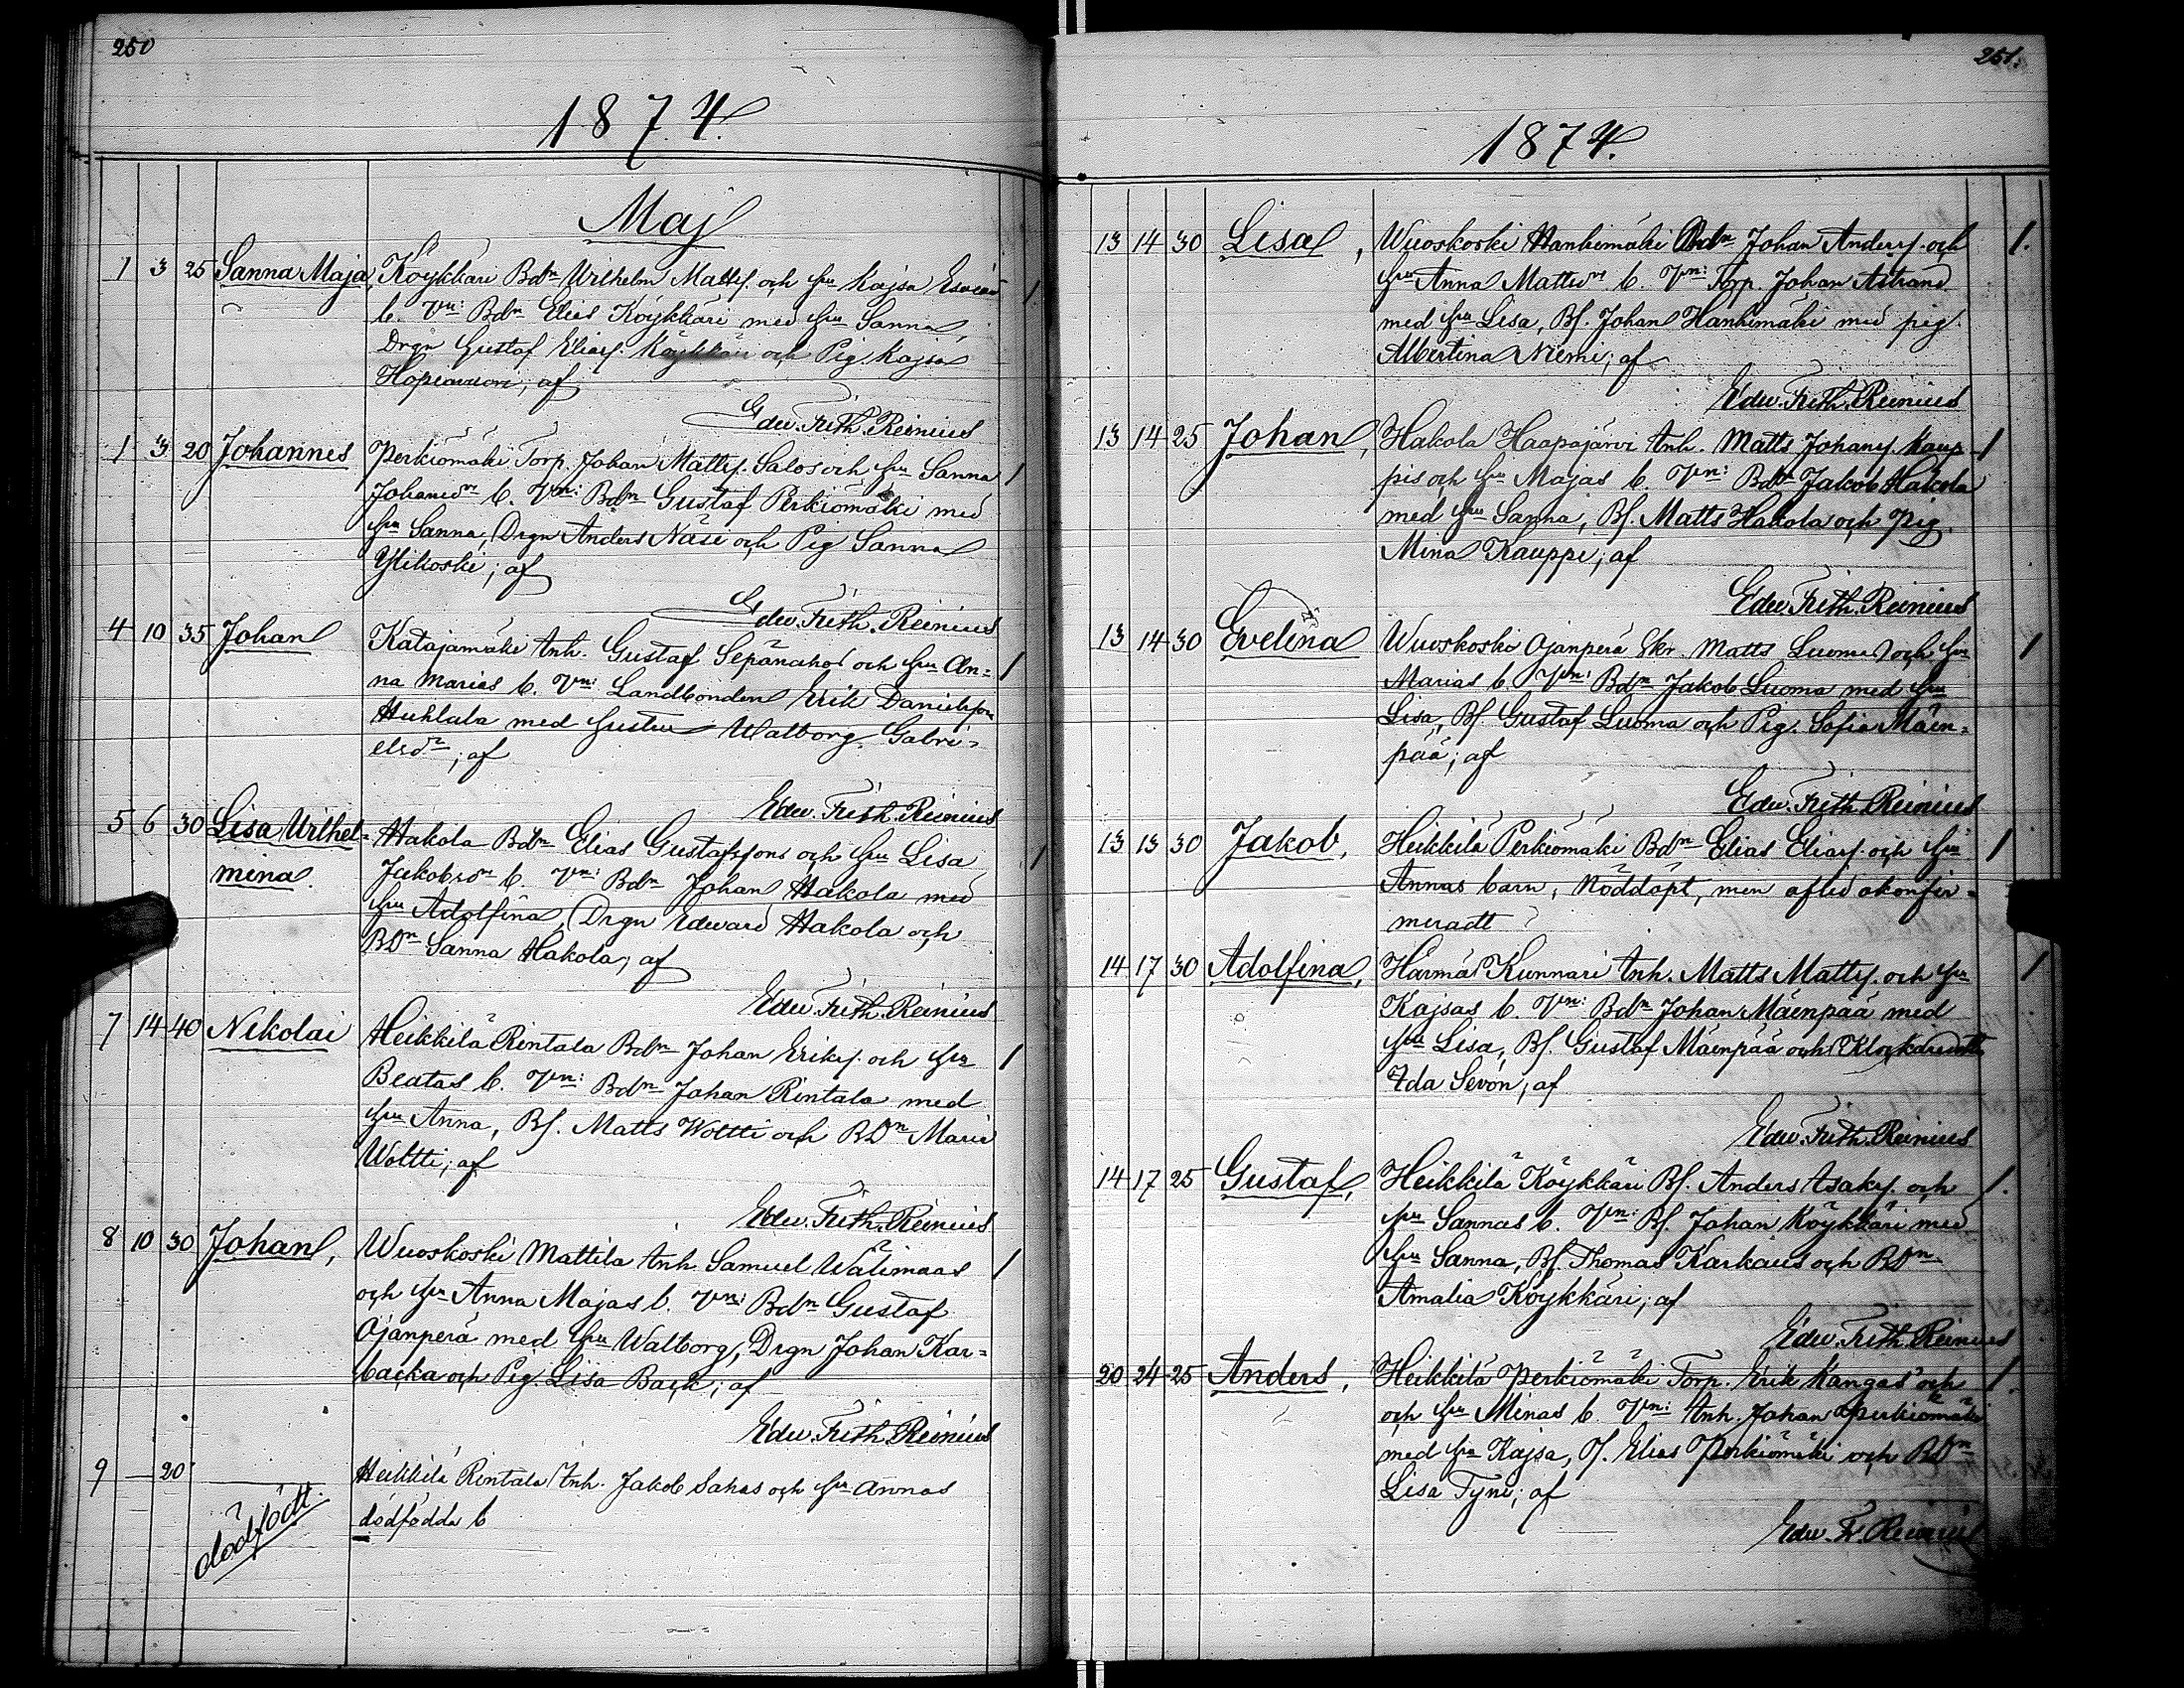 250
1874.
Maj
1 3 25 Sanna Maja, Köykkäri Bdn Wilhelm Matts. och hu Kajsa Esaiæ
b. Vn: Bdn Elias Köykkäri med hu Sanna,
Drgn Gustaf Elias. Köykkäri och Pig. Kajsa
Hopeavuori; af
Edw. Frith. Reinius
1 3 20 Johannes Perkiömäki Torp. Johan Matts. Salos och hu Sanna
Johansdr b. Vn: Bdn Gustaf Perkiömäki med
hu Sanna, Drgn Anders Näse och Pig Sanna
Ylikoski; af
Edw. Frith. Reinius
4 10 35 Johan Katajamäki Inh. Gustaf Sepänaho och hu An=
na Marias b. Vn: Landbonden Erik Danielsson
Huhtala med hustru Walborg Gabri=
elsdr; af
Edw. Frith. Reinius
5 6 30 Lisa Wilhel= Hakola Bdn Elias Gustafssons och hu Lisa
mina. Jakobsdr b. Vn: Bdn Johan Hakola med
hu Adolfina, Drgn Edward Hakola och
BDn Sanna Hakola; af
Edw. Frith. Reinius
7 14 40 Nikolai Heikkilä Rintala Bdn Johan Eriks. och hu
Beatas b. Vn: Bdn Johan Rintala med
hu Anna, Bs. Matts Woltti och BDn Maria
Woltti; af
Edw. Frith. Reinius
8 10 30 Johan, Wuoskoski Mattila Inh. Samuel Wälimaas
och hu Anna Majas b. Vn: Bdn Gustaf
Ojanperä med hu Walborg, Drgn Johan Kar=
backa och Pig. Lisa Back; af
Edw. Frith. Reinius
9 — 20 — Heikkilä Rintala Inh. Jakob Sahas och hu Annas
dödfödt. dödfödda b
251.
1874.
13 14 30 Lisa, Wuoskoski Hanhimäki Bdn Johan Anders. och 1.
hu Anna Mattsdr b. Vn: Torp. Johan Åstrand
med hu Lisa, Bs. Johan Hanhimäki med pig.
Albertina Niemi; af
Edw. Frith. Reinius
13 14 25 Johan, Hakola Haapajärvi Inh. Matts Johans. Kaup- 1
pis och hu Majas b. Vn: Bdn Jakob Hakola
med hu Sanna, Bs. Matts Hakola och Pig.
Mina Kauppi; af
Edw. Frith. Reinius
13 14 30 Evelina Wuoskoski Ojanperä Skr. Matts Luoma och hu 1
Marias b. Vn: Bdn Jakob Luoma med hu
Lisa, Bs. Gustaf Luoma och Pig. Sofia Mäen=
pää; af
Edw. Frith. Reinius
13 13 30 Jakob, Heikkilä Perkiömäki Bdn Elias Elias. och hu 1
Annas barn, Nöddöpt, men afled okonfir=
meradt
14 17 30 Adolfina, Härmä Kunnari Inh. Matts Matts. och hu 1
Kajsas b. Vn: Bdn Johan Mäenpää med
hu Lisa, Bs. Gustaf Mäenpää och Klockaredott
Ida Sevón; af
Edw. Frith. Reinius
14 17 25 Gustaf, Heikkilä Köykkäri Bs. Anders Isaks. och 1.
hu Sannas b. Vn: Bs. Johan Köykkäri med
hu Sanna, Bs. Thomas Karkaus och BDn
Amalia Köykkäri; af
Edw. Frith. Reinius
20 24 25 Anders, Heikkilä Perkiömäki Torp. Erik Kangas och 1.
och hu Minas b. Vn: Inh. Johan Perkiömäki
med hu Kajsa, Elias Perkiömäki och BDn
Lisa Tyni; af
Edw. F. Reinius